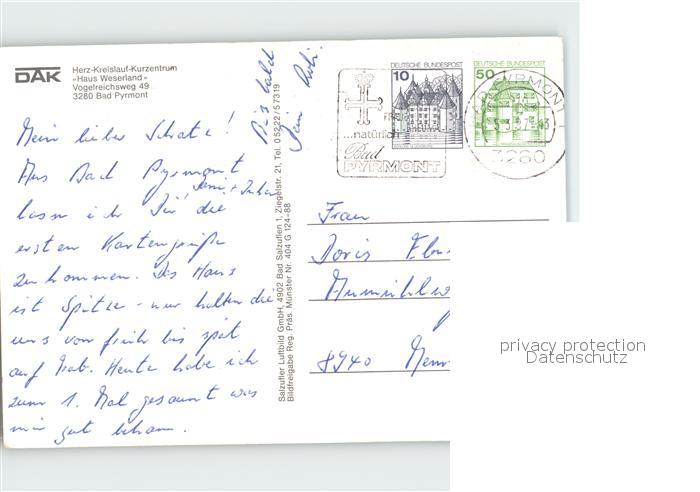 DAK
Herz-Kreislauf-Kurzentrum
»Haus Weserland«
Vogelreichsweg 49
3280 Bad Pyrmont
Mein lieber Schatz!
Aus Bad Pyrmont
lasse ich Dir die
ersten Kartengrüße
zukommen. Das Haus
ist Spitze - nur halten die
uns von früh bis spät
auf Trab. Heute habe ich
zum 1. Mal gesaunt was
mir gut bekam.
Bis bald
Dein
Salzufler Luftbild GmbH, 4902 Bad Salzuflen 1, Ziegelstr. 21, Tel. 05222/57319
Bildfreigabe Reg. Präs. Münster Nr. 404 G 124-88
DEUTSCHE BUNDESPOST
10
DEUTSCHE BUNDESPOST
50
...natürlich
Bad
PYRMONT
PYRMONT 1
3280
Frau
Doris
8940
privacy protection
Datenschutz